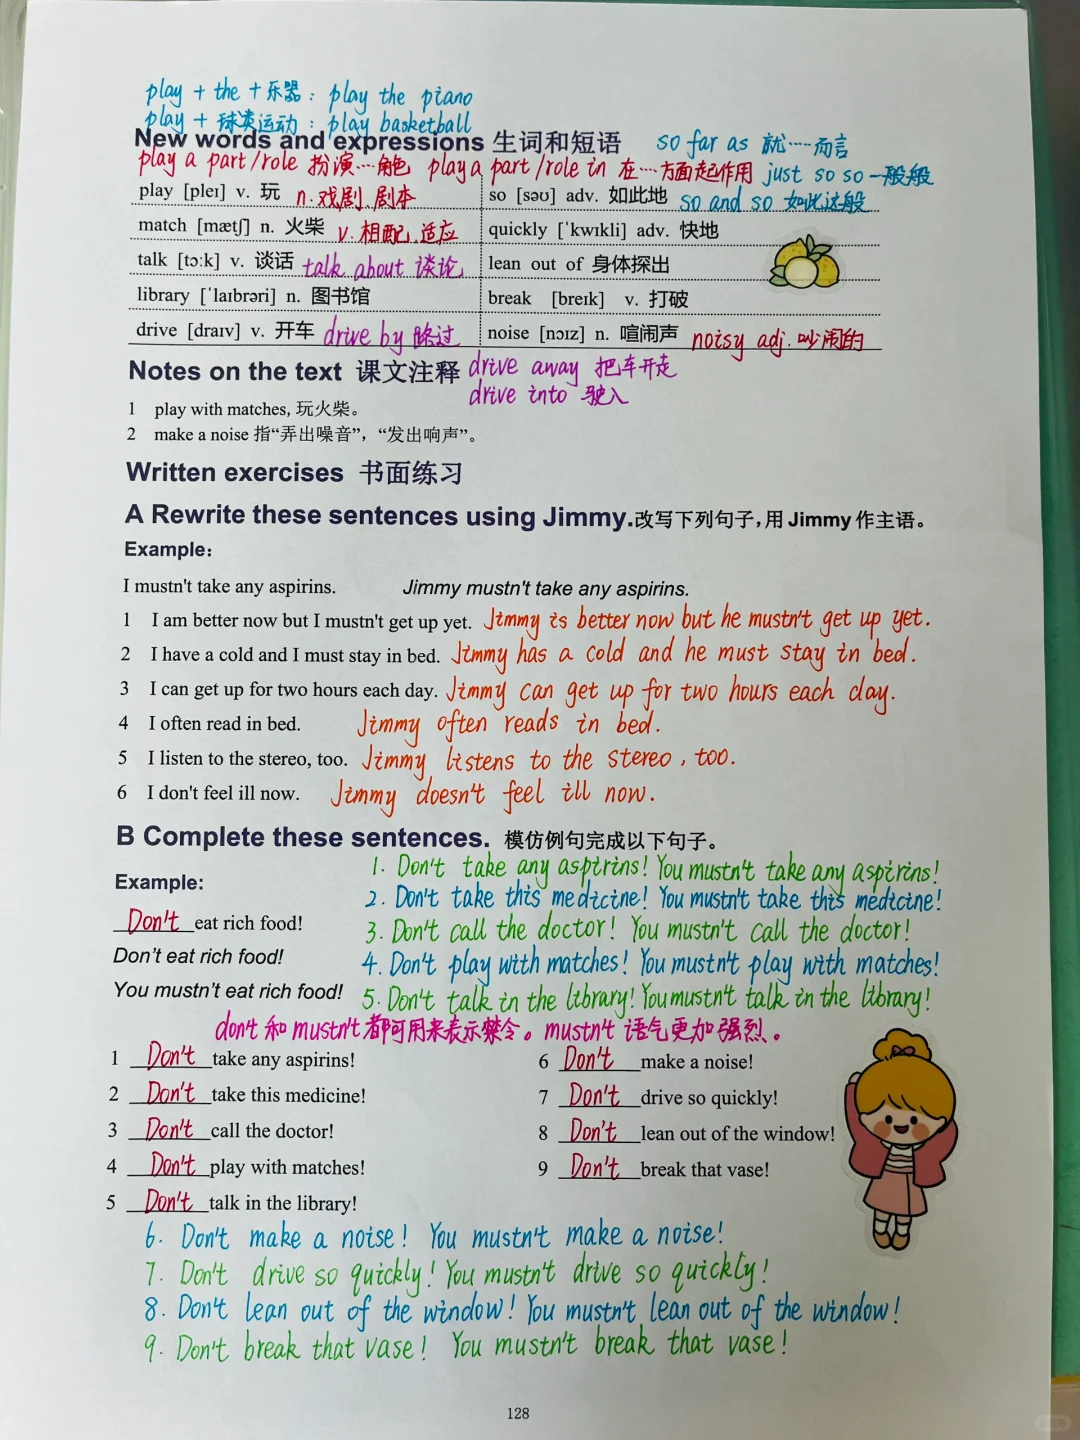 play + the + 乐器：play the piano
play + 球类运动：play basketball
New words and expressions 生词和短语 so far as 就……而言
play a part/role 扮演…角色 play a part/role in 在…方面起作用 just so so 一般般
play [pleɪ] v. 玩 n.戏剧.剧本 so [səʊ] adv. 如此地 so and so 如此这般
match [mætʃ] n. 火柴 v.相配.适应 quickly [ˈkwɪkli] adv. 快地
talk [tɔːk] v. 谈话 talk about 谈论 lean out of 身体探出
library [ˈlaɪbrəri] n. 图书馆 break [breɪk] v. 打破
drive [draɪv] v. 开车 drive by 路过 noise [nɔɪz] n. 喧闹声 noisy adj. 吵闹的
Notes on the text 课文注释 drive away 把车开走
drive into 驶入
1 play with matches, 玩火柴。
2 make a noise 指“弄出噪音”，“发出响声”。
Written exercises 书面练习
A Rewrite these sentences using Jimmy.改写下列句子，用 Jimmy 作主语。
Example:
I mustn't take any aspirins. Jimmy mustn't take any aspirins.
1 I am better now but I mustn't get up yet. Jimmy is better now but he mustn't get up yet.
2 I have a cold and I must stay in bed. Jimmy has a cold and he must stay in bed.
3 I can get up for two hours each day. Jimmy can get up for two hours each day.
4 I often read in bed. Jimmy often reads in bed.
5 I listen to the stereo, too. Jimmy listens to the stereo, too.
6 I don't feel ill now. Jimmy doesn't feel ill now.
B Complete these sentences. 模仿例句完成以下句子。
1. Don't take any aspirins! You mustn't take any aspirins!
Example:
2. Don't take this medicine! You mustn't take this medicine!
Don't eat rich food!
3. Don't call the doctor! You mustn't call the doctor!
Don't eat rich food!
4. Don't play with matches! You mustn't play with matches!
You mustn't eat rich food!
5. Don't talk in the library! You mustn't talk in the library!
don't 和 mustn't 都可用来表示禁令。mustn't 语气更加强烈。
1 Don't take any aspirins! 6 Don't make a noise!
2 Don't take this medicine! 7 Don't drive so quickly!
3 Don't call the doctor! 8 Don't lean out of the window!
4 Don't play with matches! 9 Don't break that vase!
5 Don't talk in the library!
6. Don't make a noise! You mustn't make a noise!
7. Don't drive so quickly! You mustn't drive so quickly!
8. Don't lean out of the window! You mustn't lean out of the window!
9. Don't break that vase! You mustn't break that vase!
128